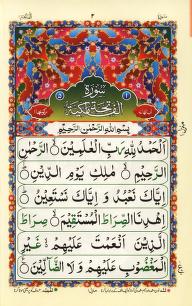 ٢
سُورَةُ
الْفَاتِحَةِ مَكِّيَّةٌ
بِسْمِ اللّٰهِ الرَّحْمٰنِ الرَّحِيْمِ
اَلْحَمْدُ لِلّٰهِ رَبِّ الْعٰلَمِيْنَ ۙ الرَّحْمٰنِ
الرَّحِيْمِ ۙ مٰلِكِ يَوْمِ الدِّيْنِ ۗ
اِيَّاكَ نَعْبُدُ وَ اِيَّاكَ نَسْتَعِيْنُ ۗ
اِهْدِنَا الصِّرَاطَ الْمُسْتَقِيْمَ ۙ صِرَاطَ
الَّذِيْنَ اَنْعَمْتَ عَلَيْهِمْ ۙ غَيْرِ
الْمَغْضُوْبِ عَلَيْهِمْ وَ لَا الضَّآلِّيْنَ